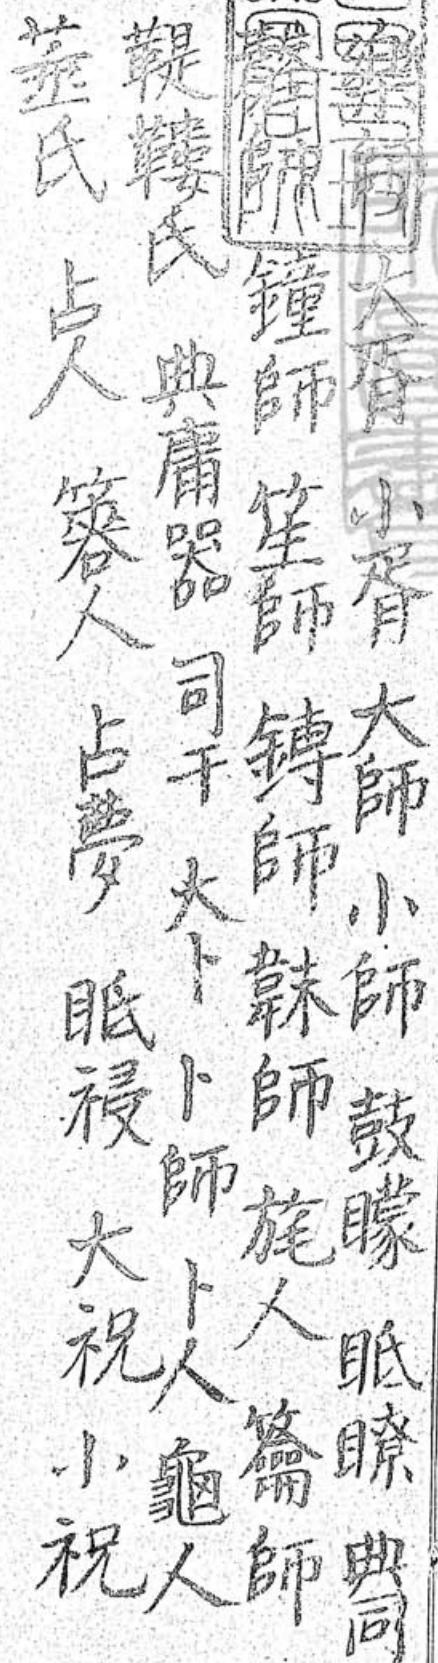 大胥 小胥 大師 小師 鼓矇 眡瞭 典同
磬師 鐘師 笙師 鎛師 韎師 旄人 籥師
鞮鞻氏 典庸器 司干 大卜 卜師 卜人 龜人
菙氏 占人 簭人 占夢 眡祲 大祝 小祝